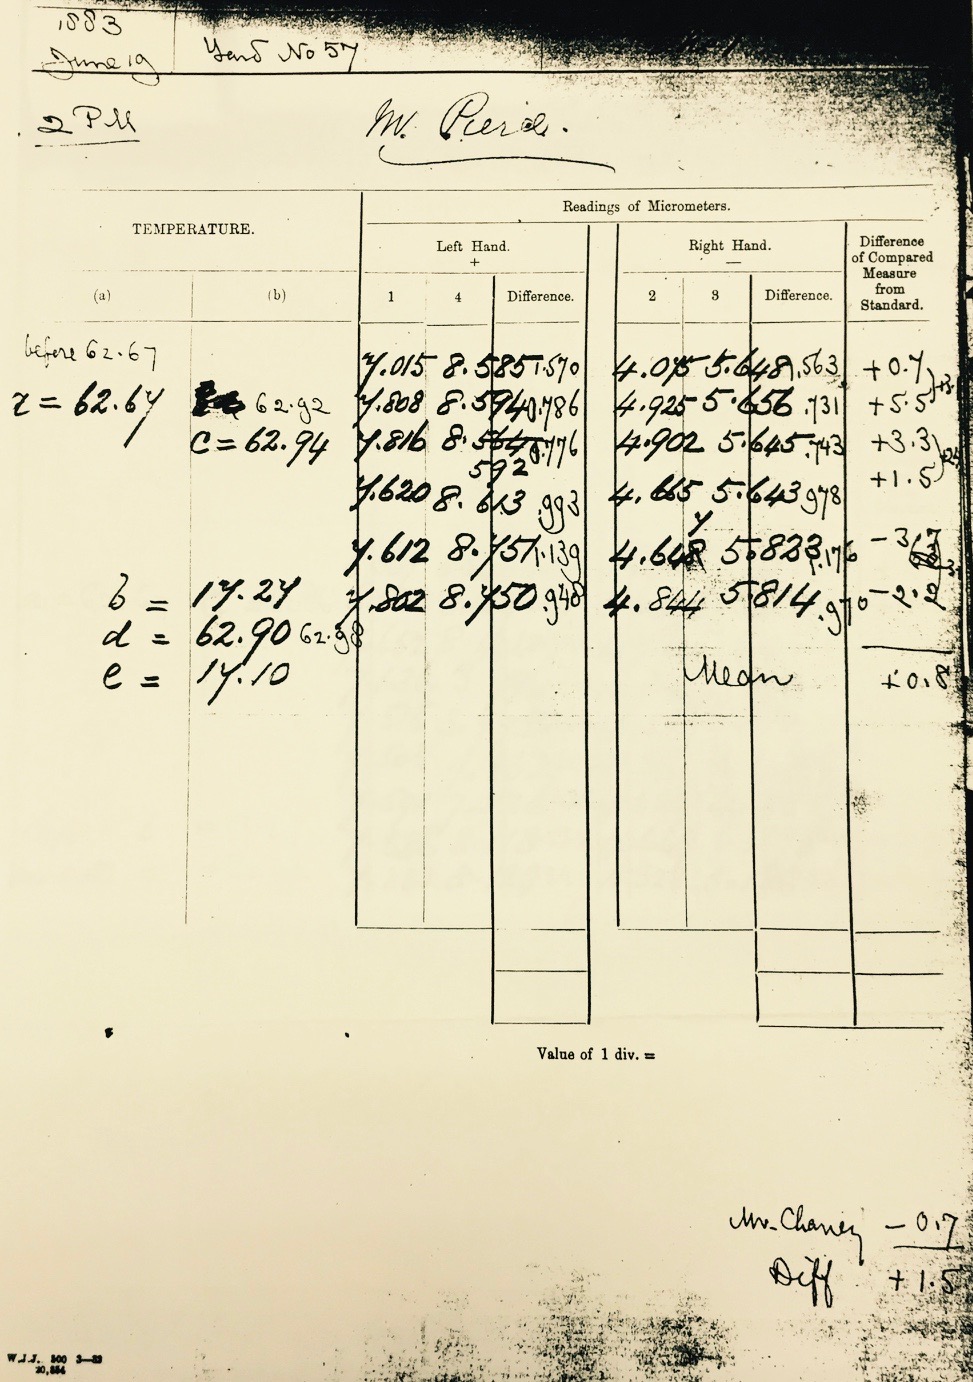 1883
June 19 Yard No 57
2 PM
Mr. Peirce.
TEMPERATURE.
Readings of Micrometers.
Left Hand.
+
Right Hand.
—
Difference
of Compared
Measure
from
Standard.
(a) (b) 1 4 Difference. 2 3 Difference.
before 62.67
7.015 8.585 1.570 4.075 5.648 1.563 +0.7
x = 62.67 62.92 7.808 8.594 0.786 4.925 5.656 .731 +5.5
c = 62.94 7.816 8.564 0.776 4.902 5.645 .743 +3.3
592
7.620 8.613 .993 4.665 5.643 .978 +1.5
7
7.612 8.751 1.139 4.648 5.823 1.176 -3.7
b = 17.27 7.802 8.750 .948 4.844 5.814 .970 -2.2
d = 62.90 62.98
e = 17.10 Mean +0.8
Value of 1 div. =
Mr. Chaney - 0.7
Diff + 1.5
W.J.J. 500 3—83
20,854